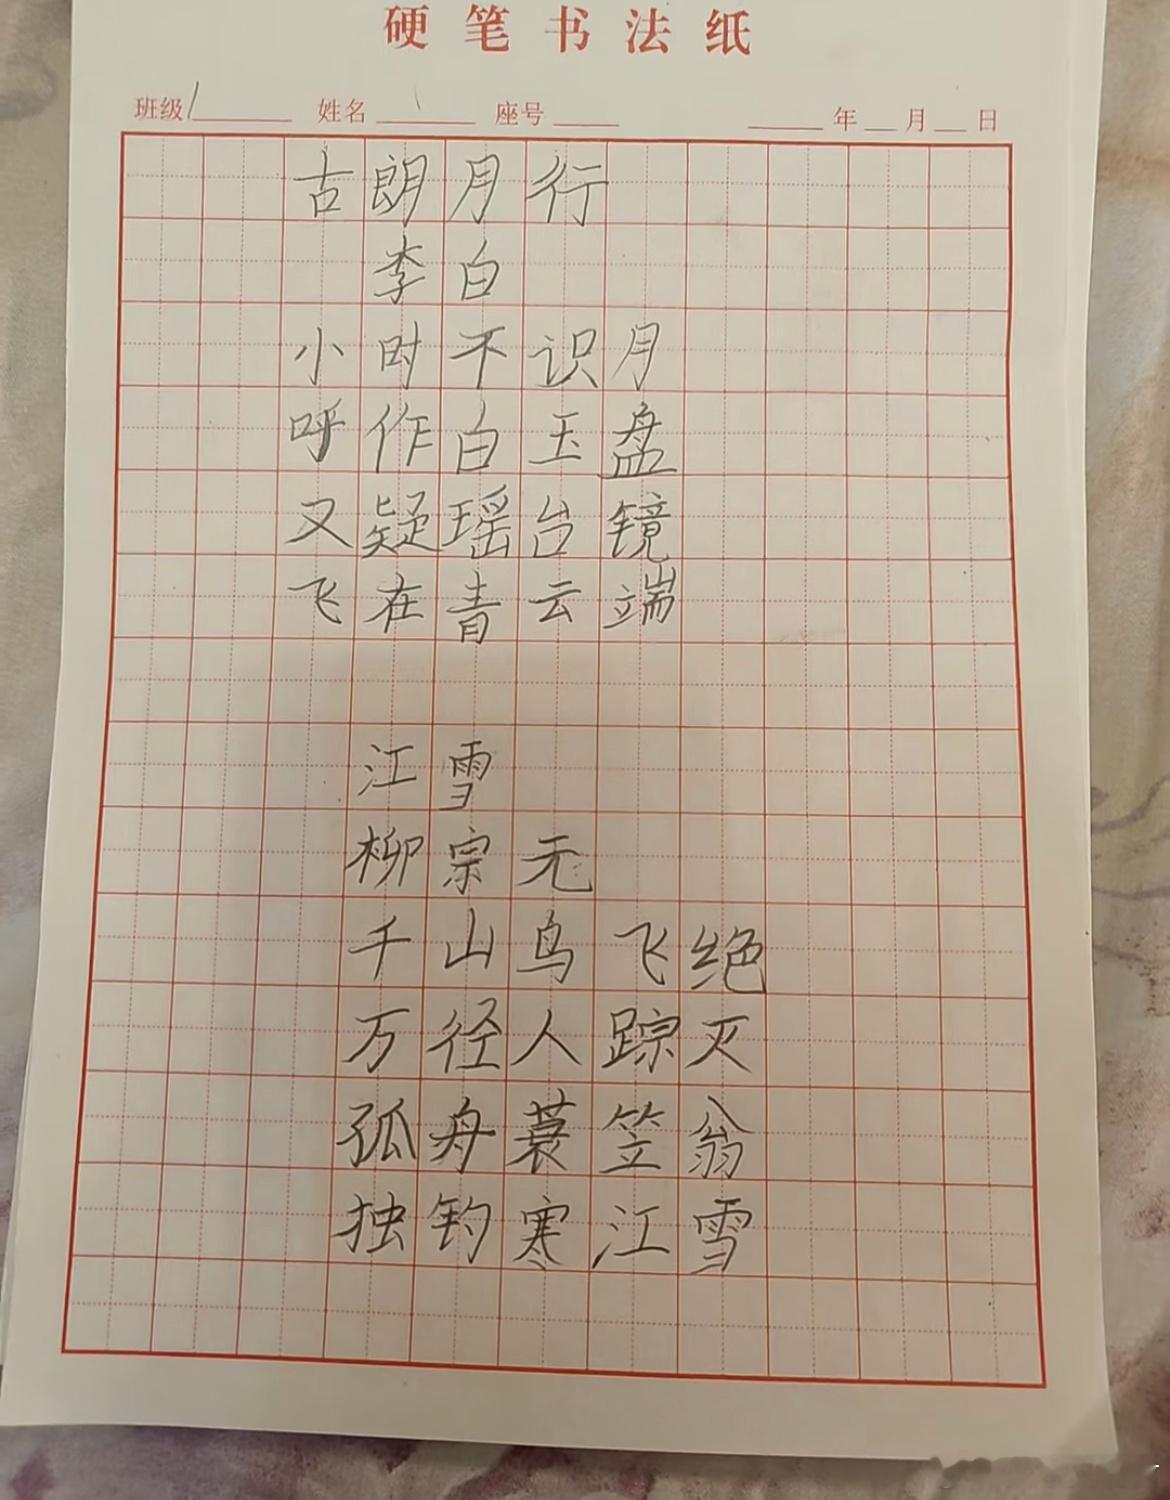 硬笔书法纸
班级 姓名 座号 年 月 日
古朗月行
李白
小时不识月
呼作白玉盘
又疑瑶台镜
飞在青云端
江雪
柳宗元
千山鸟飞绝
万径人踪灭
孤舟蓑笠翁
独钓寒江雪